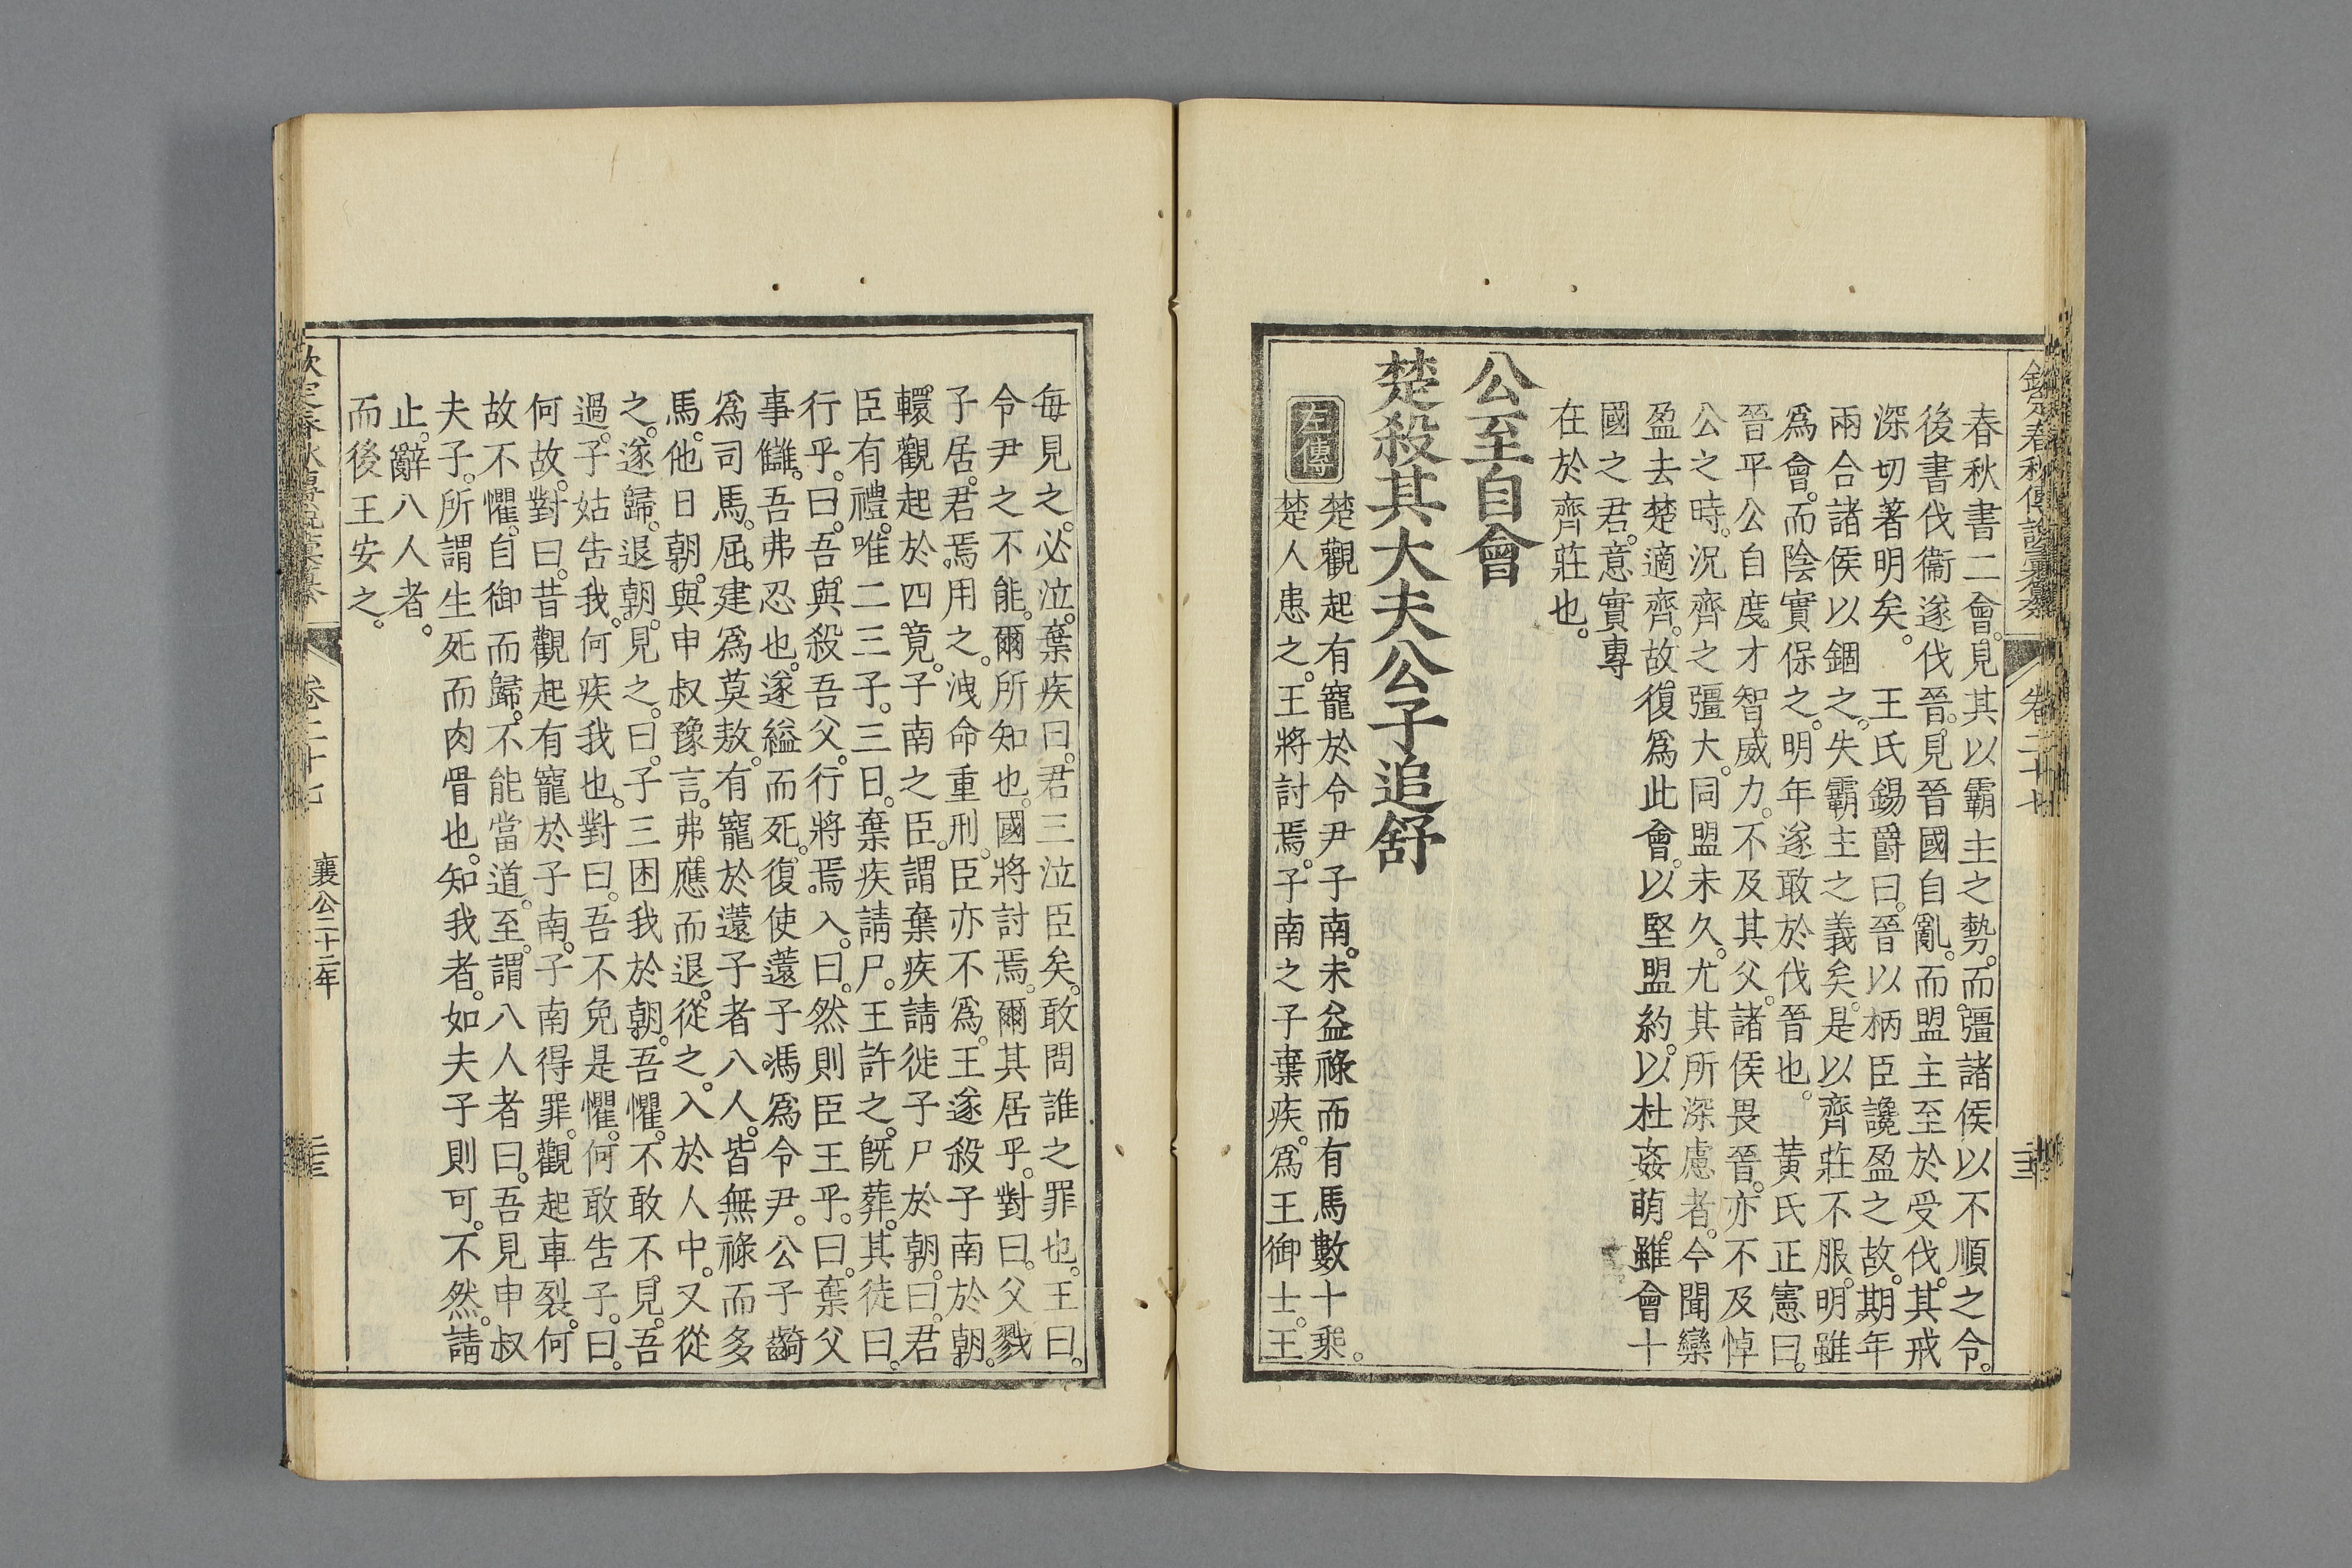 欽定春秋傳說彙纂 卷二十七
春秋書二會。見其以霸主之勢。而彊諸侯以不順之令。
後書伐衞遂伐晉。見晉國自亂。而盟主至於受伐。其戒
深切著明矣。 王氏錫爵曰。晉以柄臣讒盈之故。期年
兩合諸侯以錮之。失霸主之義矣。是以齊莊不服。明雖
爲會。而陰實保之。明年遂敢於伐晉也。 黃氏正憲曰。
晉平公自度。才智威力。不及其父。諸侯畏晉。亦不及悼
公之時。況齊之彊大。同盟未久。尤其所深慮者。今聞欒
盈去楚適齊。故復爲此會。以堅盟約。以杜姦萌。雖會十
國之君。意實專
在於齊莊也。
公至自會
楚殺其大夫公子追舒
左傳
楚觀起有寵於令尹子南。未益祿而有馬數十乘。
楚人患之。王將討焉。子南之子棄疾。爲王御士。王
每見之。必泣。棄疾曰。君三泣臣矣。敢問誰之罪也。王曰。
令尹之不能。爾所知也。國將討焉。爾其居乎。對曰。父戮
子居。君焉用之。洩命重刑。臣亦不爲。王遂殺子南於朝。
轘觀起於四竟。子南之臣。謂棄疾請徙子尸於朝。曰。君
臣有禮。唯二三子。三日。棄疾請尸。王許之。旣葬。其徒曰。
行乎。曰。吾與殺吾父。行將焉入。曰。然則臣王乎。曰。棄父
事讎。吾弗忍也。遂縊而死。復使薳子馮爲令尹。公子齮
爲司馬。屈建爲莫敖。有寵於薳子者八人。皆無祿而多
馬。他日朝。與申叔豫言。弗應而退。從之。入於人中。又從
之。遂歸。退朝。見之。曰。子三困我於朝。吾懼。不敢不見。吾
過。子姑告我。何疾我也。對曰。吾不免是懼。何敢告子。曰。
何故。對曰。昔觀起有寵於子南。子南得罪。觀起車裂。何
故不懼。自御而歸。不能當道。至。謂八人者曰。吾見申叔
夫子。所謂生死而肉骨也。知我者。如夫子則可。不然。請
止。辭八人者。
而後王安之。
欽定春秋傳說彙纂 卷二十七 襄公二十二年